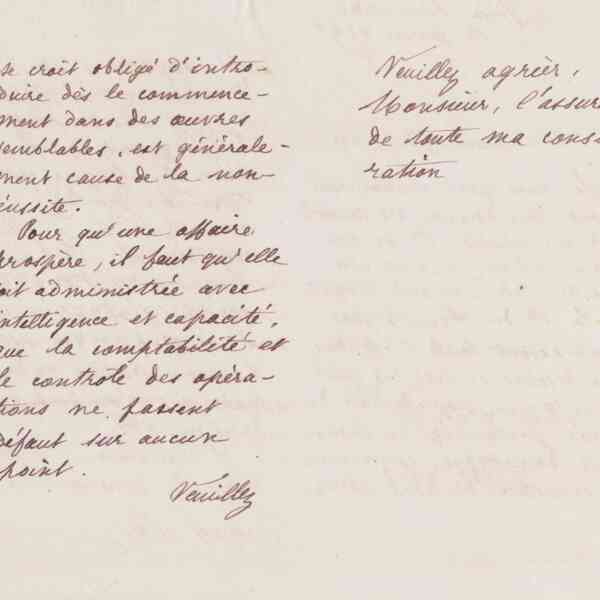 se croit obligé d'intro-
duire dès le commence-
ment dans des œuvres
semblables, est générale-
ment cause de la non-
réussite.
Pour qu'une affaire
prospère, il faut qu'elle
soit administrée avec
intelligence et capacité,
que la comptabilité et
le controle des opéra-
tions ne fassent
défaut sur aucun
point.
Veuillez
Veuillez agréer,
Monsieur, l'assur
de toute ma cons
ration